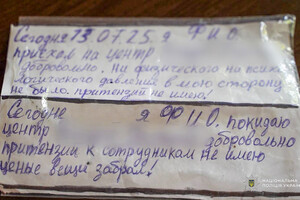 Сегодня 13.07.25 я Ф И О
приехал на центр
добровольно. Ни физического на психо
логического давления в мою сторону
не было притензий не имею!
Сегодне я Ф И О. покидаю
центр добровольно
притензии к сотрудникам не имею
ценые вещи забрал!